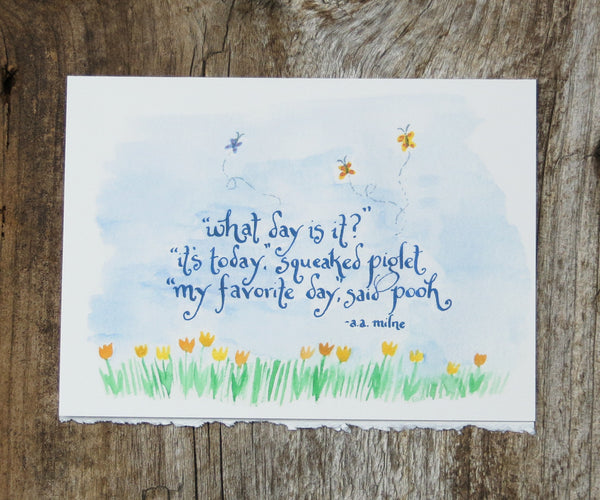 "what day is it?"
"it's today," squeaked piglet
"my favorite day," said pooh
-a.a. milne